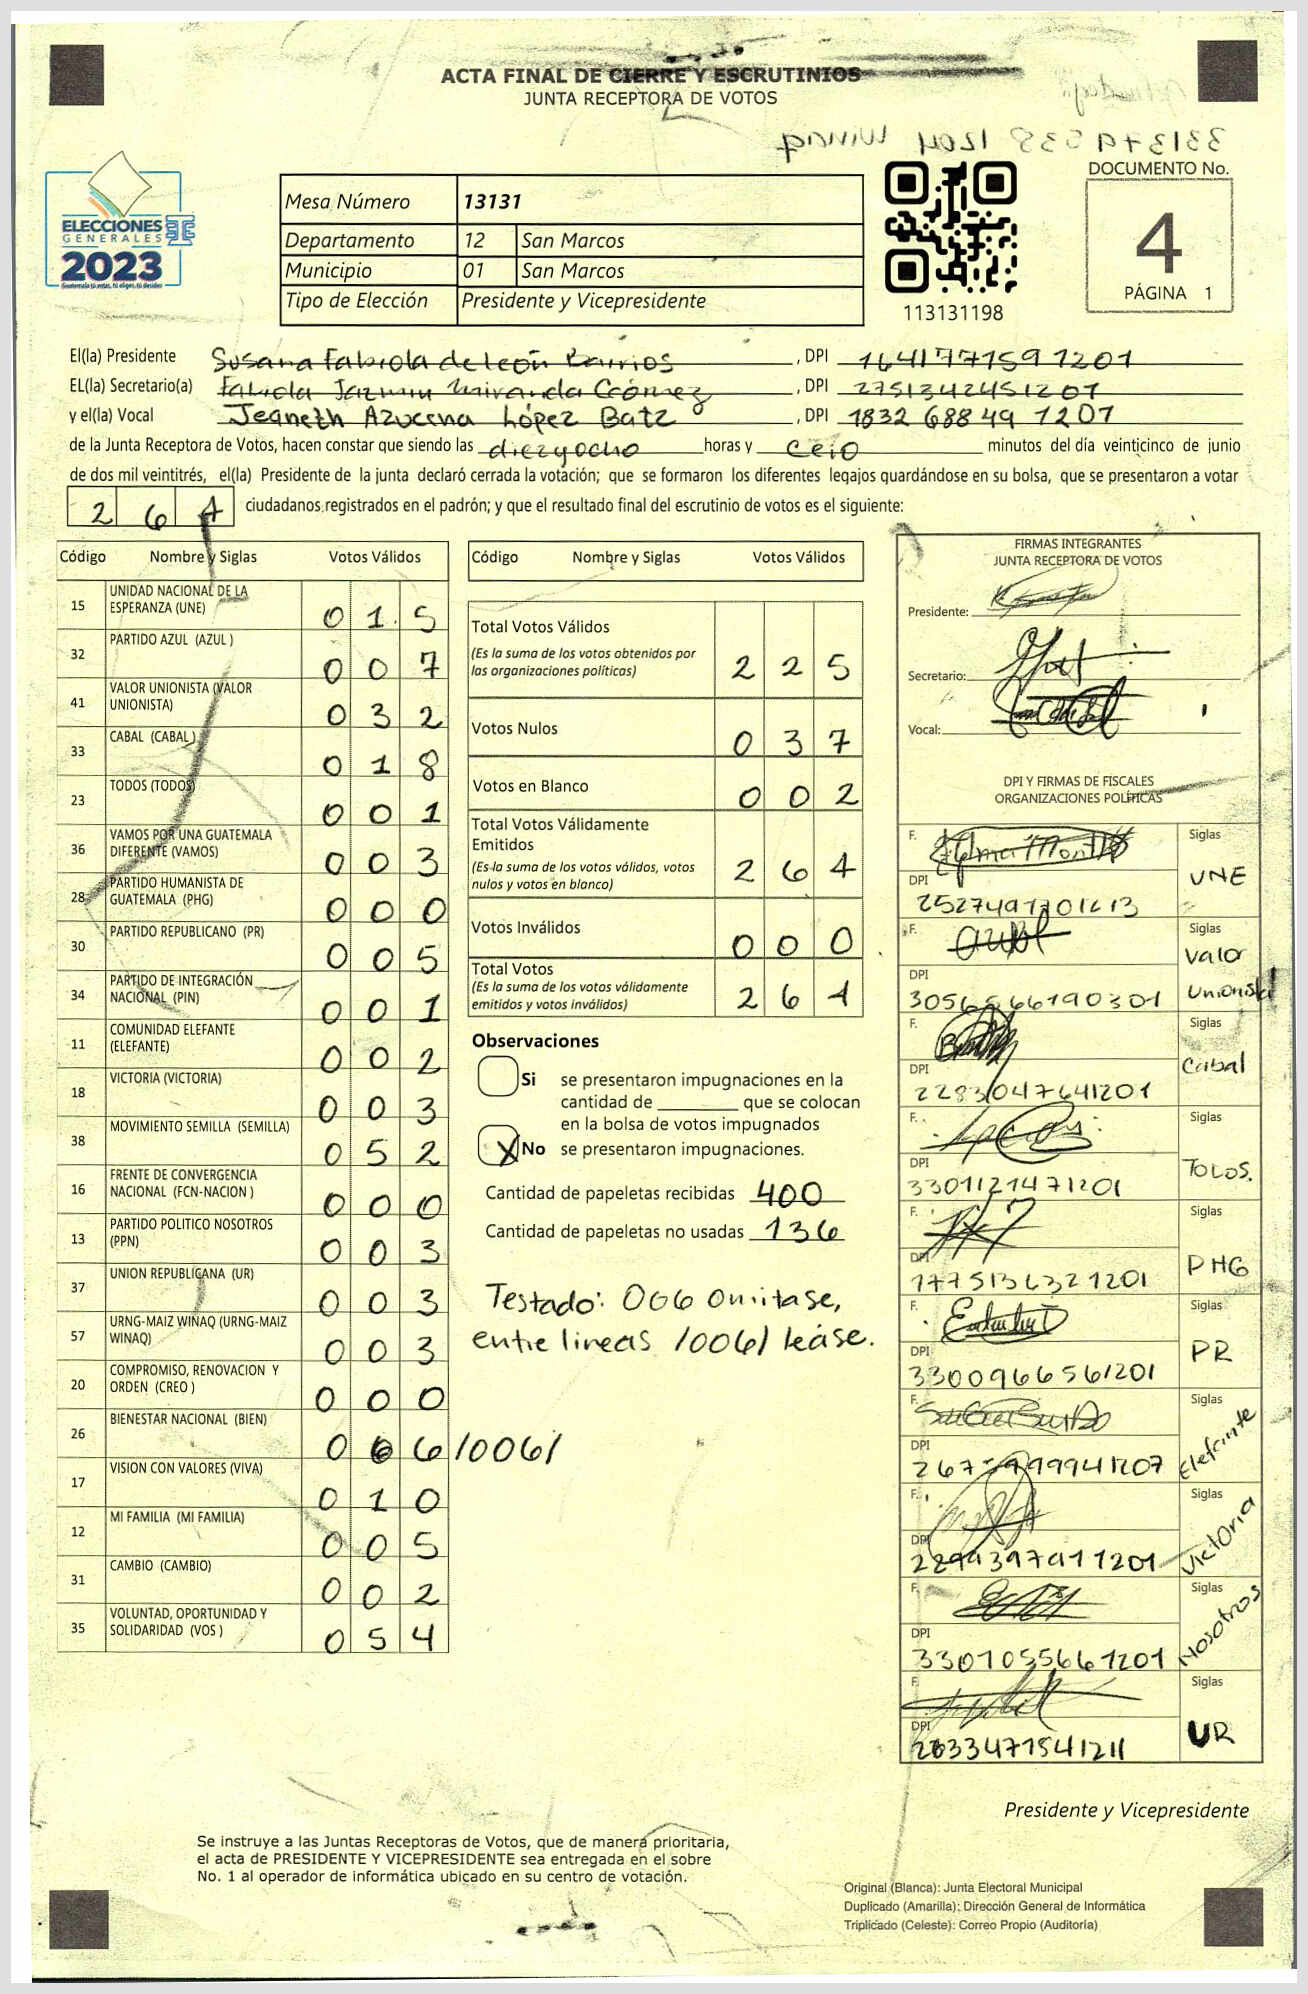 ACTA FINAL DE CIERRE Y ESCRUTINIOS
JUNTA RECEPTORA DE VOTOS
DOCUMENTO No.
4
PÁGINA 1
ELECCIONES
GENERALES
2023
Mesa Número 13131
Departamento 12 San Marcos
Municipio 01 San Marcos
Tipo de Elección Presidente y Vicepresidente
113131198
El(la) Presidente Susana Fabiola de león Barrios, DPI 1641777591201
EL(la) Secretario(a) Fabiola Jazmin Miranda Gómez, DPI 2751342451201
y el(la) Vocal Jeaneth Azucena López Batz, DPI 1832 68849 1201
de la Junta Receptora de Votos, hacen constar que siendo las diezyocho horas y Ceio minutos del día veinticinco de junio
de dos mil veintitrés, el(la) Presidente de la junta declaró cerrada la votación; que se formaron los diferentes legajos guardándose en su bolsa, que se presentaron a votar
264 ciudadanos registrados en el padrón; y que el resultado final del escrutinio de votos es el siguiente:
Código Nombre y Siglas Votos Válidos
15 UNIDAD NACIONAL DE LA ESPERANZA (UNE) 015
32 PARTIDO AZUL (AZUL ) 007
41 VALOR UNIONISTA (VALOR UNIONISTA) 032
33 CABAL (CABAL ) 018
23 TODOS (TODOS) 001
36 VAMOS POR UNA GUATEMALA DIFERENTE (VAMOS) 003
28 PARTIDO HUMANISTA DE GUATEMALA (PHG) 000
30 PARTIDO REPUBLICANO (PR) 005
34 PARTIDO DE INTEGRACIÓN NACIONAL (PIN) 001
11 COMUNIDAD ELEFANTE (ELEFANTE) 002
18 VICTORIA (VICTORIA) 003
38 MOVIMIENTO SEMILLA (SEMILLA) 052
16 FRENTE DE CONVERGENCIA NACIONAL (FCN-NACION ) 000
13 PARTIDO POLITICO NOSOTROS (PPN) 003
37 UNION REPUBLICANA (UR) 003
57 URNG-MAIZ WINAQ (URNG-MAIZ WINAQ) 003
20 COMPROMISO, RENOVACION Y ORDEN (CREO ) 000
26 BIENESTAR NACIONAL (BIEN) 066 /006/
17 VISION CON VALORES (VIVA) 010
12 MI FAMILIA (MI FAMILIA) 005
31 CAMBIO (CAMBIO) 002
35 VOLUNTAD, OPORTUNIDAD Y SOLIDARIDAD (VOS ) 054
Código Nombre y Siglas Votos Válidos
Total Votos Válidos 225
(Es la suma de los votos obtenidos por
las organizaciones políticas)
Votos Nulos 037
Votos en Blanco 002
Total Votos Válidamente
Emitidos 264
(Es la suma de los votos válidos, votos
nulos y votos en blanco)
Votos Inválidos 000
Total Votos 264
(Es la suma de los votos válidamente
emitidos y votos inválidos)
Observaciones
Si se presentaron impugnaciones en la
cantidad de ________ que se colocan
en la bolsa de votos impugnados
X No se presentaron impugnaciones.
Cantidad de papeletas recibidas 400
Cantidad de papeletas no usadas 136
Testado: 066 Omitase,
entre lineas /006/ léase.
FIRMAS INTEGRANTES
JUNTA RECEPTORA DE VOTOS
Presidente:
Secretario:
Vocal:
DPI Y FIRMAS DE FISCALES
ORGANIZACIONES POLÍTICAS
F. Siglas UNE
DPI
F. Siglas Valor Unionista
DPI 3056566190301
F. Siglas Cabal
DPI 2283047641201
F. Siglas TODOS.
DPI 3301121471201
F. Siglas PHG
DPI 1775136321201
F. Siglas PR
DPI 3300966561201
F. Siglas Elefante
DPI
F. Siglas Victoria
DPI
F. Siglas Nosotros
DPI 3301055661201
F. Siglas UR
DPI
Presidente y Vicepresidente
Se instruye a las Juntas Receptoras de Votos, que de manera prioritaria,
el acta de PRESIDENTE Y VICEPRESIDENTE sea entregada en el sobre
No. 1 al operador de informática ubicado en su centro de votación.
Original (Blanca): Junta Electoral Municipal
Duplicado (Amarilla): Dirección General de Informática
Triplicado (Celeste): Correo Propio (Auditoría)